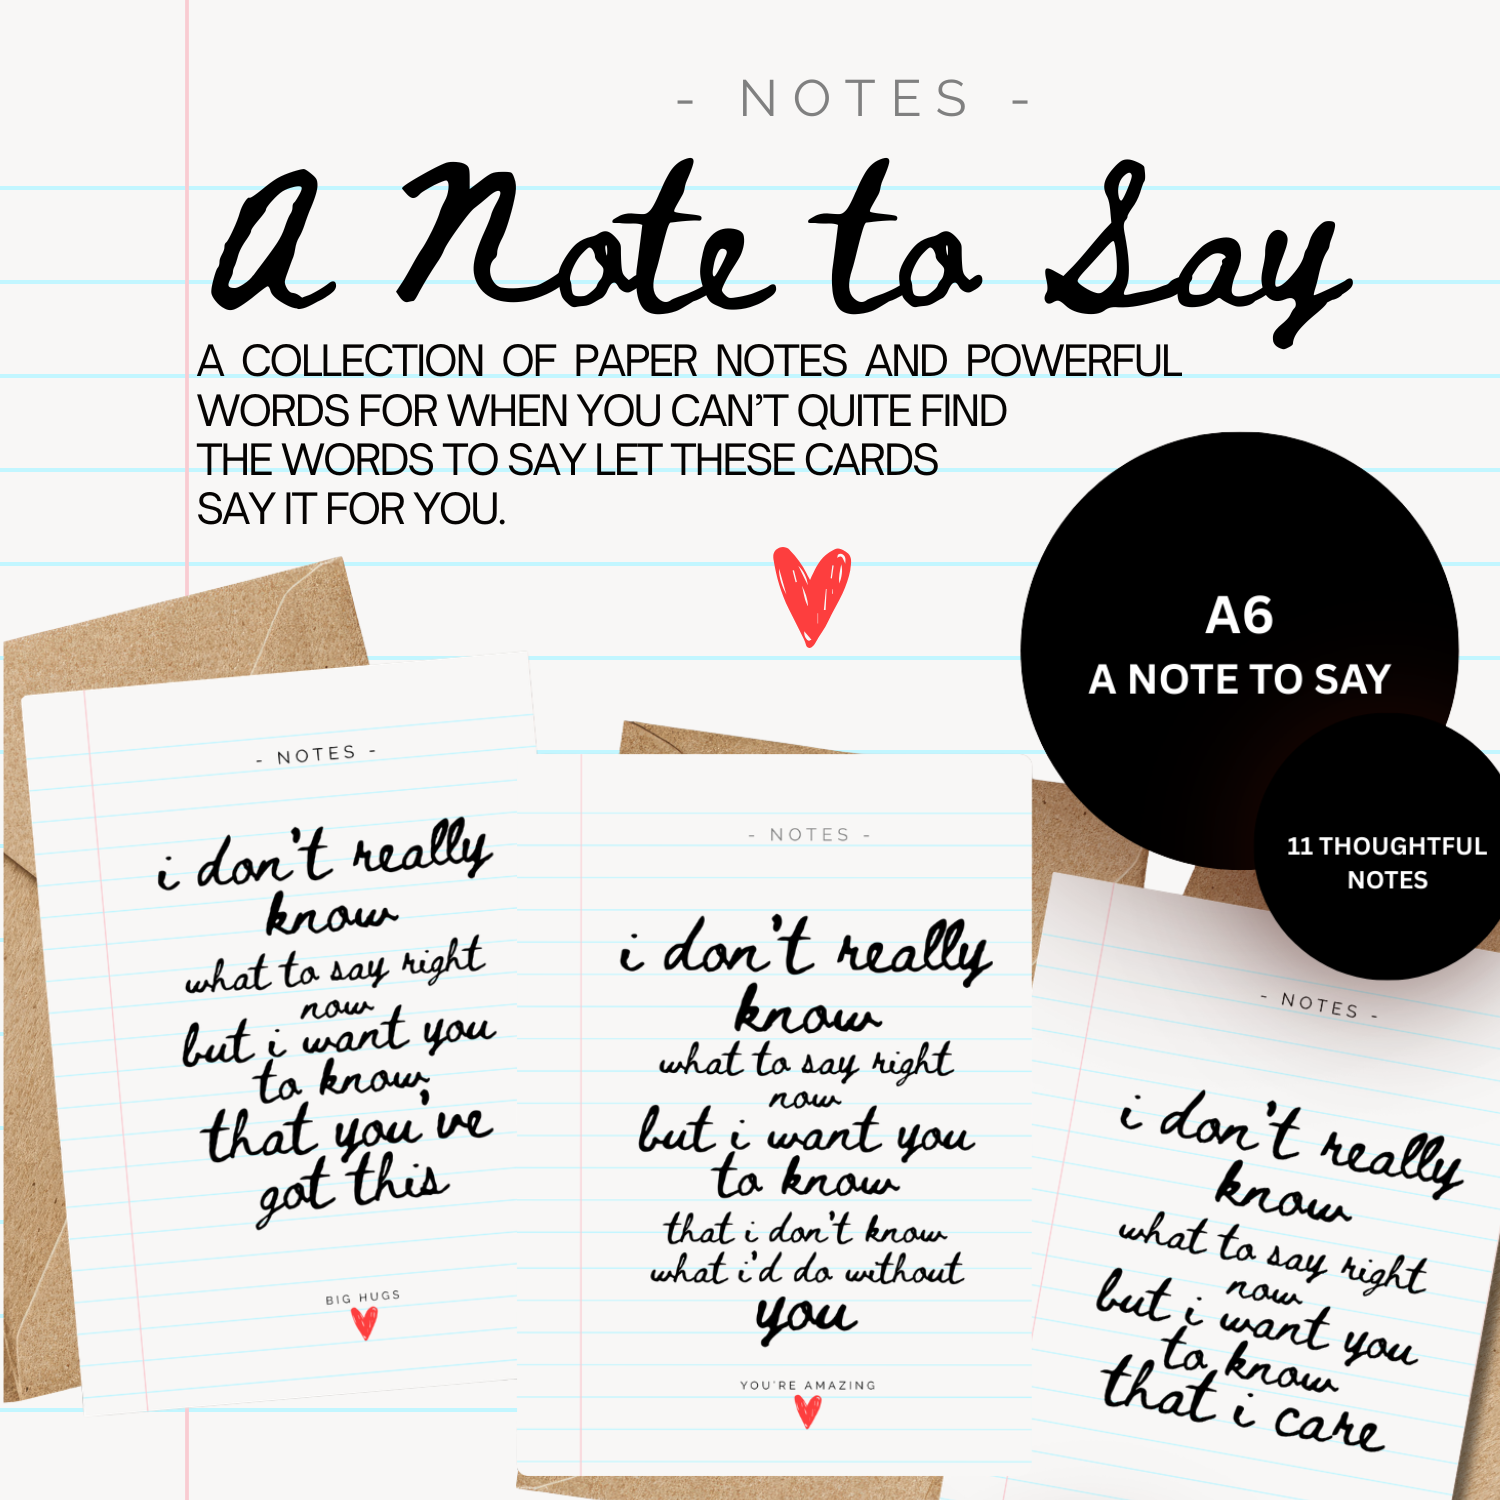 - NOTES -
A Note to Say
A COLLECTION OF PAPER NOTES AND POWERFUL
WORDS FOR WHEN YOU CAN'T QUITE FIND
THE WORDS TO SAY LET THESE CARDS
SAY IT FOR YOU.
A6
A NOTE TO SAY
11 THOUGHTFUL
NOTES
- NOTES -
i don't really
know
what to say right
now
but i want you
to know,
that you've
got this
BIG HUGS
- NOTES -
i don't really
know
what to say right
now
but i want you
to know
that i don't know
what i'd do without
you
YOU'RE AMAZING
- NOTES -
i don't really
know
what to say right
now
but i want you
to know
that i care